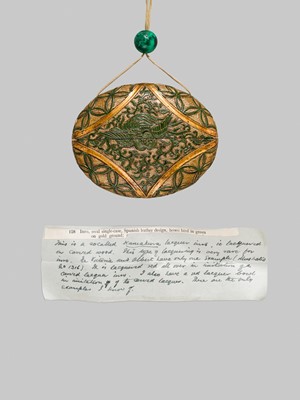 128 Inro, oval single-case, Spanish leather design, howo bird in green
on gold ground.
This is a so called Kamakura lacquer inro, ie lacquered
on carved wood. This type of lacquering is very rare for
inro, the Victoria and Albert have only one example (illustrated
It is lacquered red. It was in imitation of
carved lacquer inro. I also have a red lacquer bowl
in imitation of to carved lacquer. These are the only
examples I know of